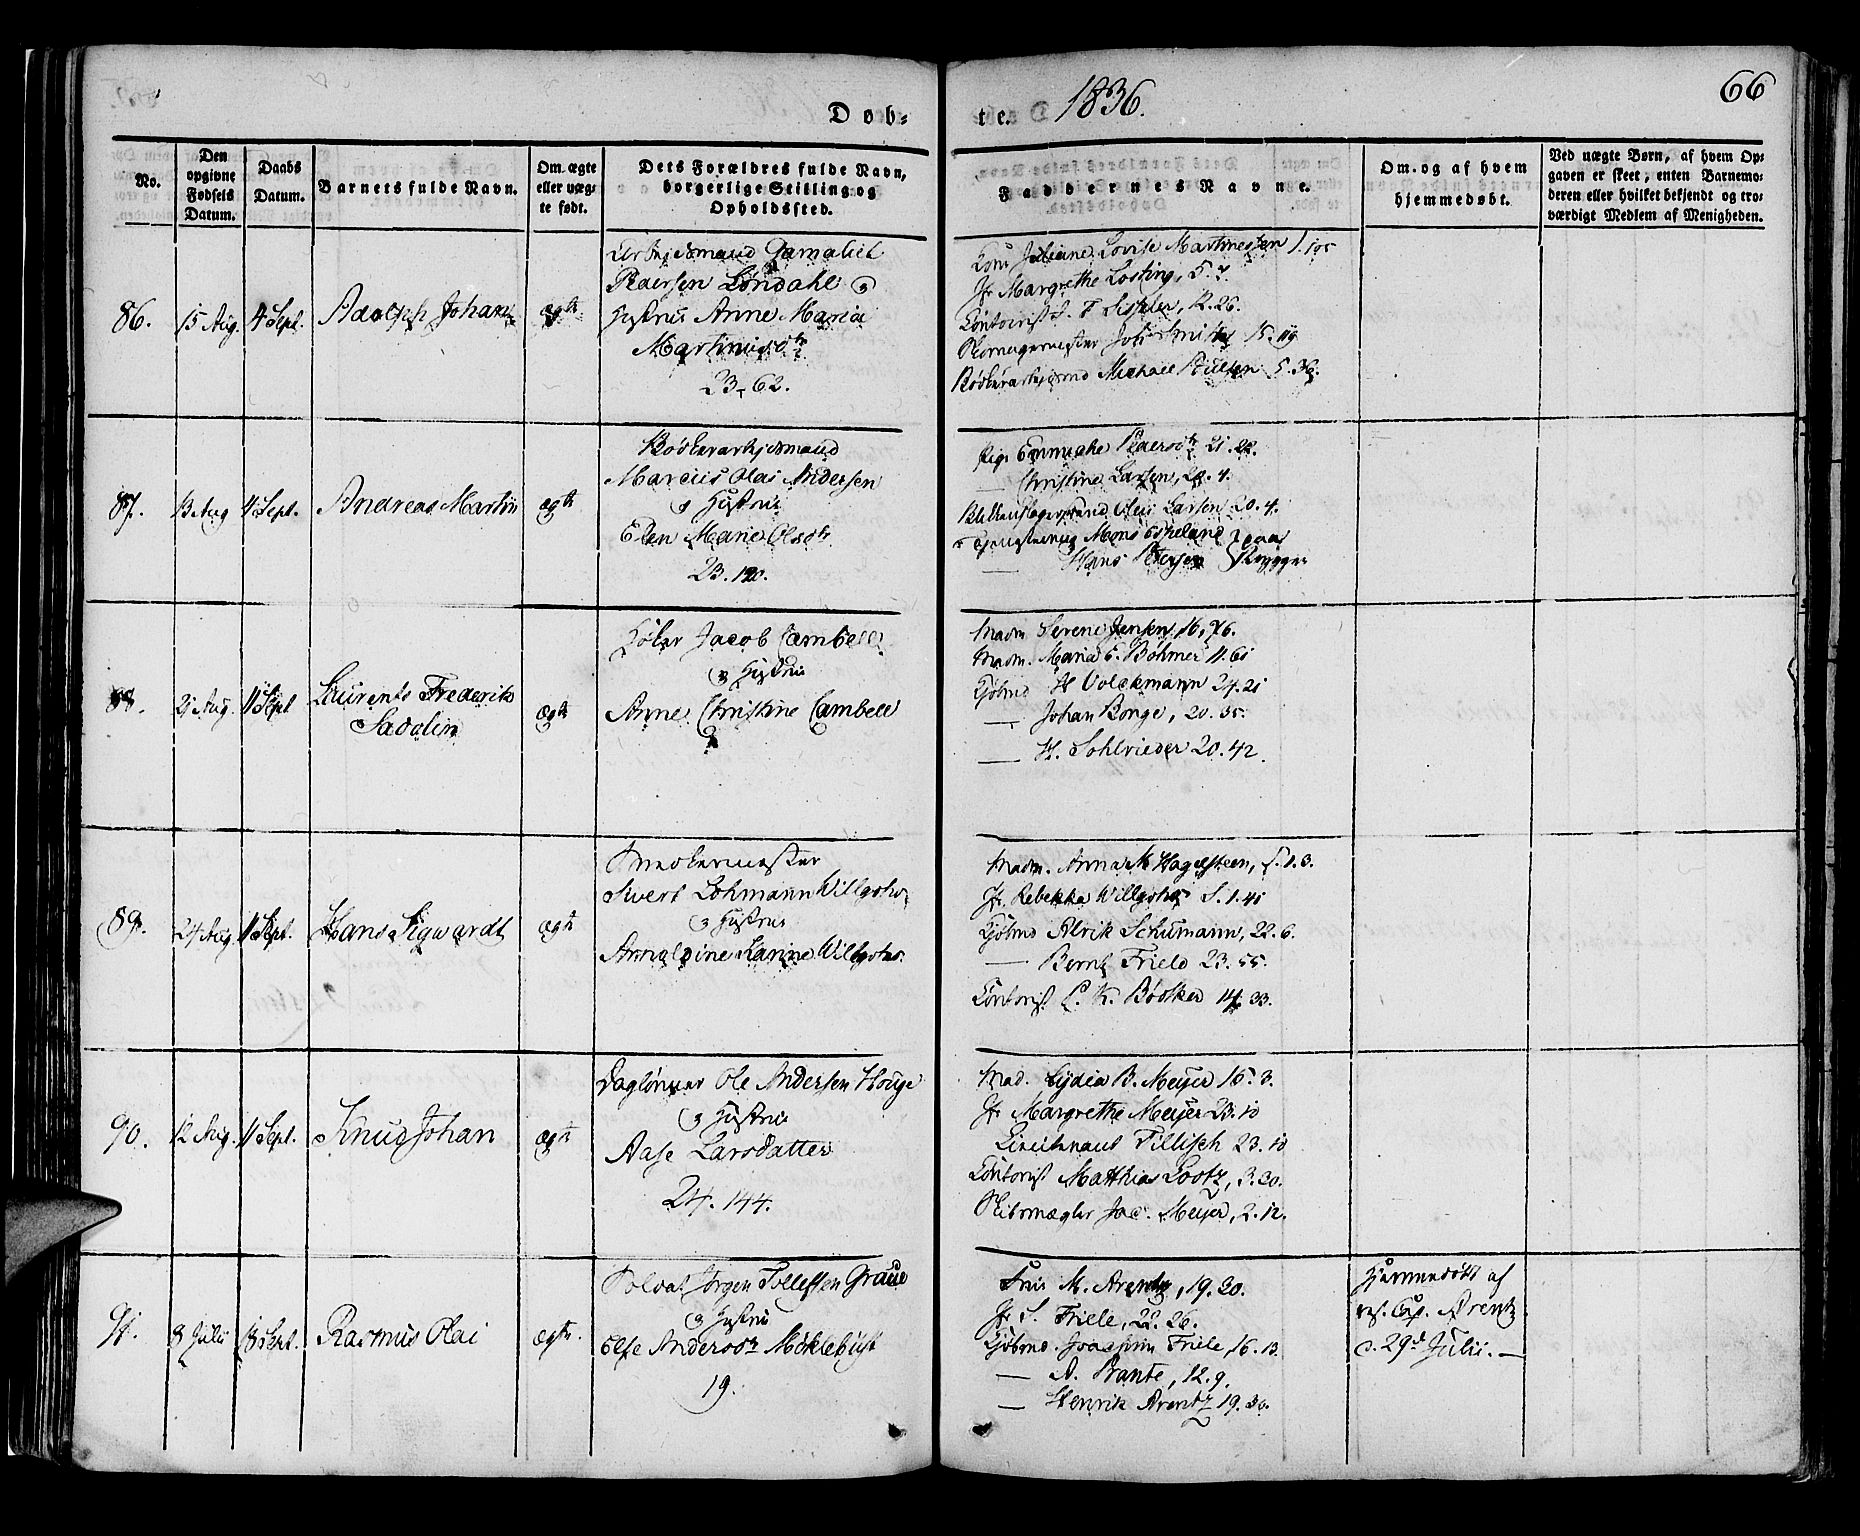 Døb-
te. 1836.
66
No.
Den opgivne Fødsels Datum.
Daabs Datum.
Barnets fulde Navn.
Om ægte eller uæg-te født.
Dets Forældres fulde Navn, borgerlige Stilling og Opholdssted.
Faddernes Navne.
Om og af hvem hjemmedøbt.
Ved uægte Børn, af hvem Op-gaven er skeet, enten Barnemo-deren eller hvilket bekjendt og tro-værdigt Medlem af Menigheden.
86.
15 Aug.
4 Sept.
Adolph Johan
ægte
Arbejdsmand Gamaliel
Pedersen Løndahl og
Hustrue Anne Maria
Martinusdtr
23-62.
Kone Juliane Lovise Martinessen 1.
Jfr Margrethe Losting, 5.
Contorist 12.26.
Skorneyermester Joh Smith 15. 119
Bødkerarbejdsmd Michael Poulsen 5.36.
87.
13 Aug
4 Sept.
Andreas Martin
ægte
Bødkerarbejdsmand
Marcus Olai Andersen
og Hustrue
Elen Marie Olsdtr
23.120.
Pige Emmiche Pedersdtr 21.22.
— Christine Larsen, 20.4.
Olai Larsen 20.4.
Mons Espeland } paa
— Hans Petersen } Bryggen
88.
21 Aug.
11 Sept
Laurents Frederik
Sadolin
ægte
Høker Jacob Cambell
og Hustrue
Anne Christine Cambell
Madm Serene Jensen, 16,76.
Madm. Maria E. Böhmer 11.61
Kjøbmd H Volckmann 24.21
— Johan Konge, 20.35.
— H. Sohlvieder 20.42.
89.
24 Aug.
11 Sept.
Hans Sigwardt
ægte
Snedkermester
Sivert Lohmann Willgohs
og Hustrue
Arnoldine Karine Willgohs.
Madm. Anna M Hagelsteen, S.1.3.
Jfr. Rebekka Willgohs S.1.41
Kjøbmd Alrik Schumann, 22.6.
— Bernt Friele 23.55.
Contorist C. K. Bødtker 14.33.
90.
12 Aug.
11 Sept.
Knud Johan
ægte
Daglønner Ole Andersen Houge
og Hustrue
Aase Larsdatter
24.144.
Mad. Lydia B. Meyer 16.3.
Jfr Margrethe Meyer 23.10
Lieutenant Tillisch 23.10
Contorist Matthias Lootz, 3.30.
Skibsmægler Jac. Meyer, 2.12.
91.
8 Julii
18 Sept.
Rasmus Olai
ægte.
Soldat Jørgen Tollefsen Graue
og Hustrue
Else Andersdtr Møklebust
19.
Frue M. Arentz, 19.30.
Jfr S. Friele, 22.26.
Kjøbmd. Joachim Friele, 16.13.
— A. Brante, 12.9.
— Henrik Arentz 19.30.
Hjemmedøbt af
res. Cap. Arentz
d. 29d Julii.—